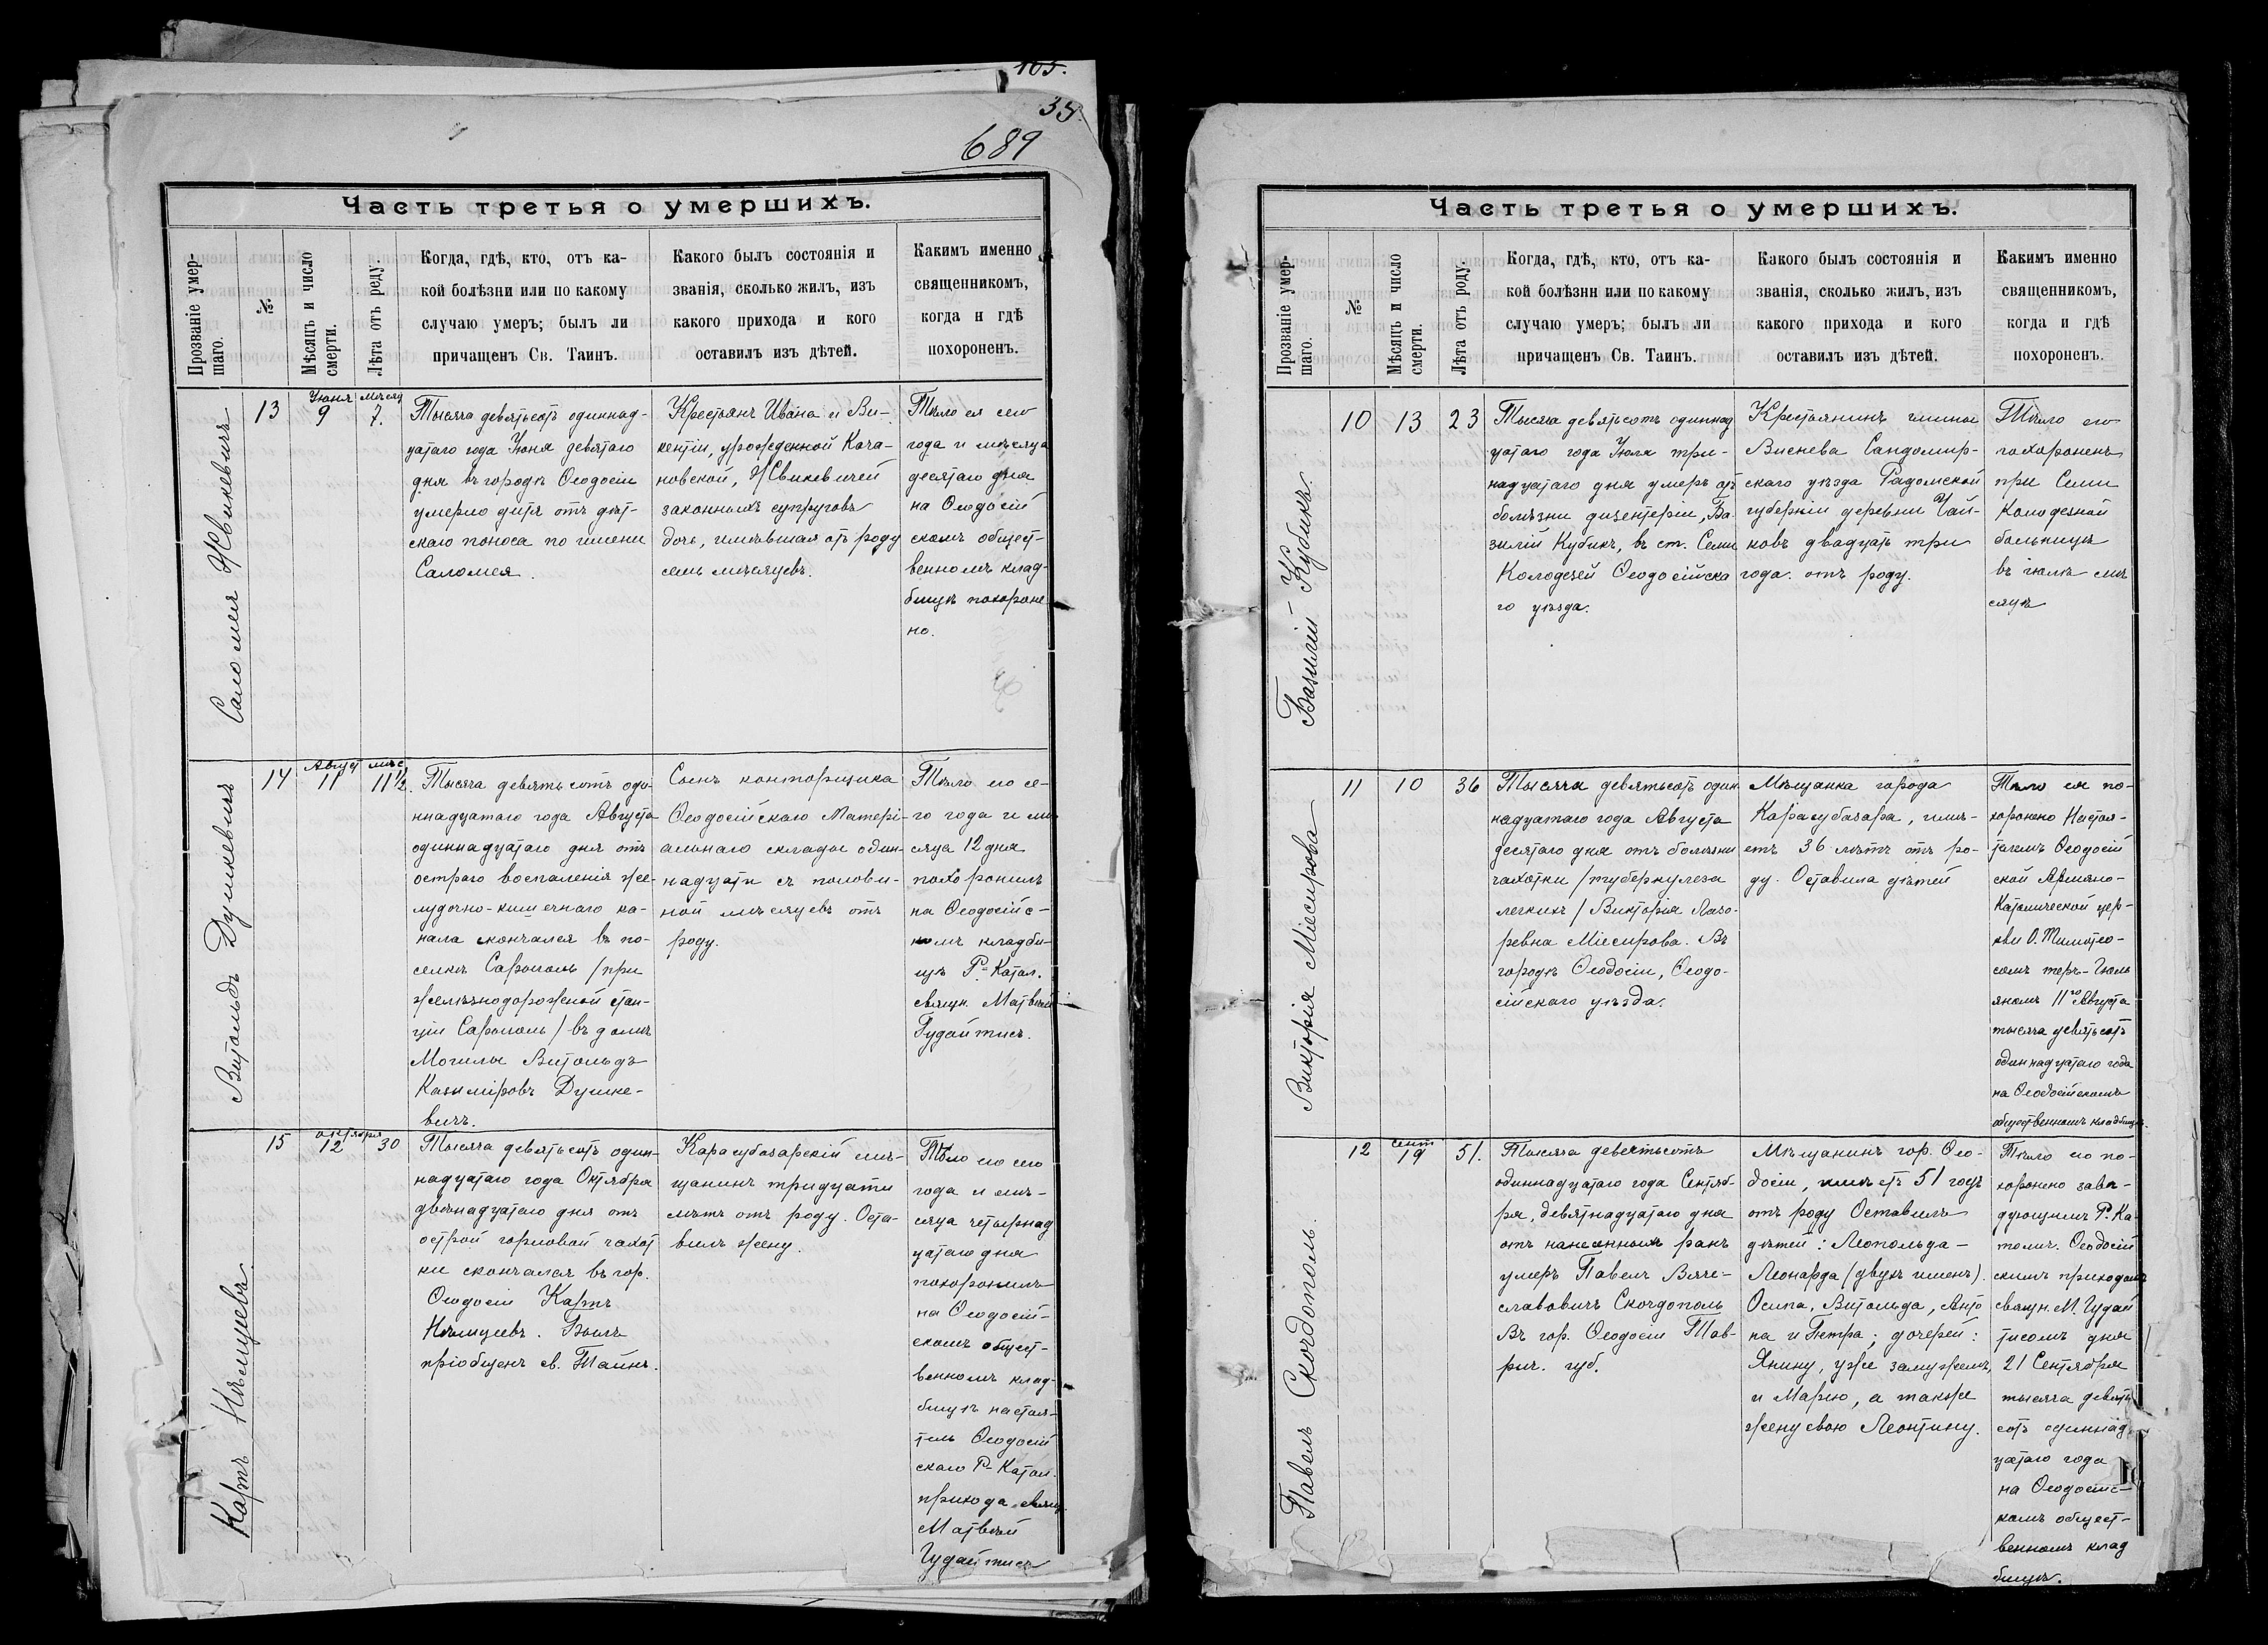 105.
35.
689
Часть третья о умершихъ.
Прозваніе умер-
шаго.
№
Мѣсяцъ и число
смерти.
Лѣта отъ роду.
Когда, гдѣ, кто, отъ ка-
кой болѣзни или по какому
случаю умеръ; былъ ли
причащенъ Св. Таинъ.
Какого былъ состоянія и
званія, сколько жилъ, изъ
какого прихода и кого
оставилъ изъ дѣтей.
Какимъ именно
священникомъ,
когда и гдѣ
похороненъ.
Саломея
13
Іюня
9
мѣсяц
7.
Тысяча девятьсотъ одиннад-
цатаго года Іюня девятаго
дня въ городѣ Ѳеодосіи
умерло дитя отъ дѣт-
скаго поноса по имени
Саломея.
Крестьянъ Ивана и Ви-
кентіи, урожденной Кача-
новской,
законныхъ супруговъ
дочь, имѣвшая отъ роду
семь мѣсяцевъ.
Тѣло ея сего
года и мѣсяца
десятаго дня
на Ѳеодосій
скомъ общест-
венномъ клад-
бищѣ похороне
но.
Витольдъ Душкевичъ
14
Август
11
мѣс
11½.
Тысяча девятьсотъ оди-
ннадцатаго года Августа
одиннадцатаго дня отъ
остраго воспаленія же-
лудочно-кишечнаго ка-
нала скончался въ по-
селкѣ Сарыголь /при
желѣзнодорожной стан-
ціи Сарыголь/ въ домѣ
Могилы Витольдъ
Казиміровъ Душке-
вичъ.
Сынъ конторщика
Ѳеодосійскаго Матері-
альнаго склада один-
надцати съ полови-
ной мѣсяцевъ отъ
роду.
Тѣло его се-
го года и мѣ
сяца 12 дня
похоронилъ
на Ѳеодосійс-
комъ кладби-
щѣ Р-Катол.
священ. Матвѣй
Гудайтисъ.
Карпъ Нѣмцевъ
15
октября
12
30
Тысяча девятьсотъ один-
надцатаго года Октября
двѣнадцатаго дня отъ
острой горловой чахот
ки скончался въ гор.
Ѳеодосіи Карпъ
Нѣмцевъ. Былъ
пріобщенъ св. Тайнъ.
Карасубазарскій мѣ-
щанинъ тридцати
лѣтъ отъ роду. Оста-
вилъ жену.
Тѣло его сего
года и мѣ-
сяца четырнад
цатаго дня
похоронилъ
на Ѳеодосій-
скомъ общест-
венномъ клад-
бищѣ настоя-
тель Ѳеодосій
скаго Р-Катол.
прихода свящ.
Матвѣй
Гудайтисъ
Часть третья о умершихъ.
Прозваніе умер-
шаго.
№
Мѣсяцъ и число
смерти.
Лѣта отъ роду.
Когда, гдѣ, кто, отъ ка-
кой болѣзни или по какому
случаю умеръ; былъ ли
причащенъ Св. Таинъ.
Какого былъ состоянія и
званія, сколько жилъ, изъ
какого прихода и кого
оставилъ изъ дѣтей.
Какимъ именно
священникомъ,
когда и гдѣ
похороненъ.
Базилій Кубикъ.
10
13
23
Тысяча девятьсотъ одиннад
цатаго года Іюля три-
надцатаго дня умеръ отъ
болѣзни дизентеріи, Ба-
зилій Кубикъ, въ ст. Семи
Колодезей Ѳеодосійска
го уѣзда.
Крестьянинъ гмины
Виснева Сандомир-
скаго уѣзда Радомской
губерніи деревни Чай-
ковъ двадцать три
года. отъ роду.
Тѣло его
похороненъ
при Семи
Колодезной
больницѣ
въ іюлѣ мѣ
сяцѣ
Викторія Місирова
11
10
36
Тысяча девятьсотъ один
надцатаго года Августа
десятаго дня отъ болѣзни
чахотки /туберкулеза
легкихъ/ Викторія Лазо-
ревна Місирова. Въ
городѣ Ѳеодосіи, Ѳеодо-
сійскаго уѣзда.
Мѣщанка города
Карасубазара, имѣ-
етъ 36 лѣтъ отъ ро-
ду. Оставила дѣтей
Тѣло ея по-
хоронено Настоя-
телемъ Ѳеодосій
ской Армяно-
Католической цер-
кви О.
11го Августа
тысяча девятьсотъ
одиннадцатаго года
на Ѳеодосійскомъ
общественномъ кладбищѣ.
Павелъ Скочдополь.
12
сент
19
51.
Тысяча девятьсотъ
одиннадцатаго года Сентяб-
ря, девятнадцатаго дня
отъ нанесенныхъ ранъ
умеръ Павелъ Вяче-
славовичъ Скочдополь
Въ гор. Ѳеодосіи Тав-
рич. губ.
Мѣщанинъ гор. Ѳео-
досіи, имѣетъ 51 годъ
отъ роду Оставилъ
дѣтей: Леопольда-
Леонарда (двухъ именъ).
Осипа, Витольда, Анто
на и Петра; дочерей:
Янину, уже замужемъ,
и Марію, а также
жену свою Леонтину.
Тѣло его по-
хоронено завѣ-
дующимъ Р.-Ка-
толич. Ѳеодосій
скимъ приходомъ
священ. М. Гудай
тисомъ дня
21 Сентября
тысяча девять
сотъ одиннад
цатаго года
на Ѳеодосійс-
комъ общест-
венномъ клад
бищѣ.